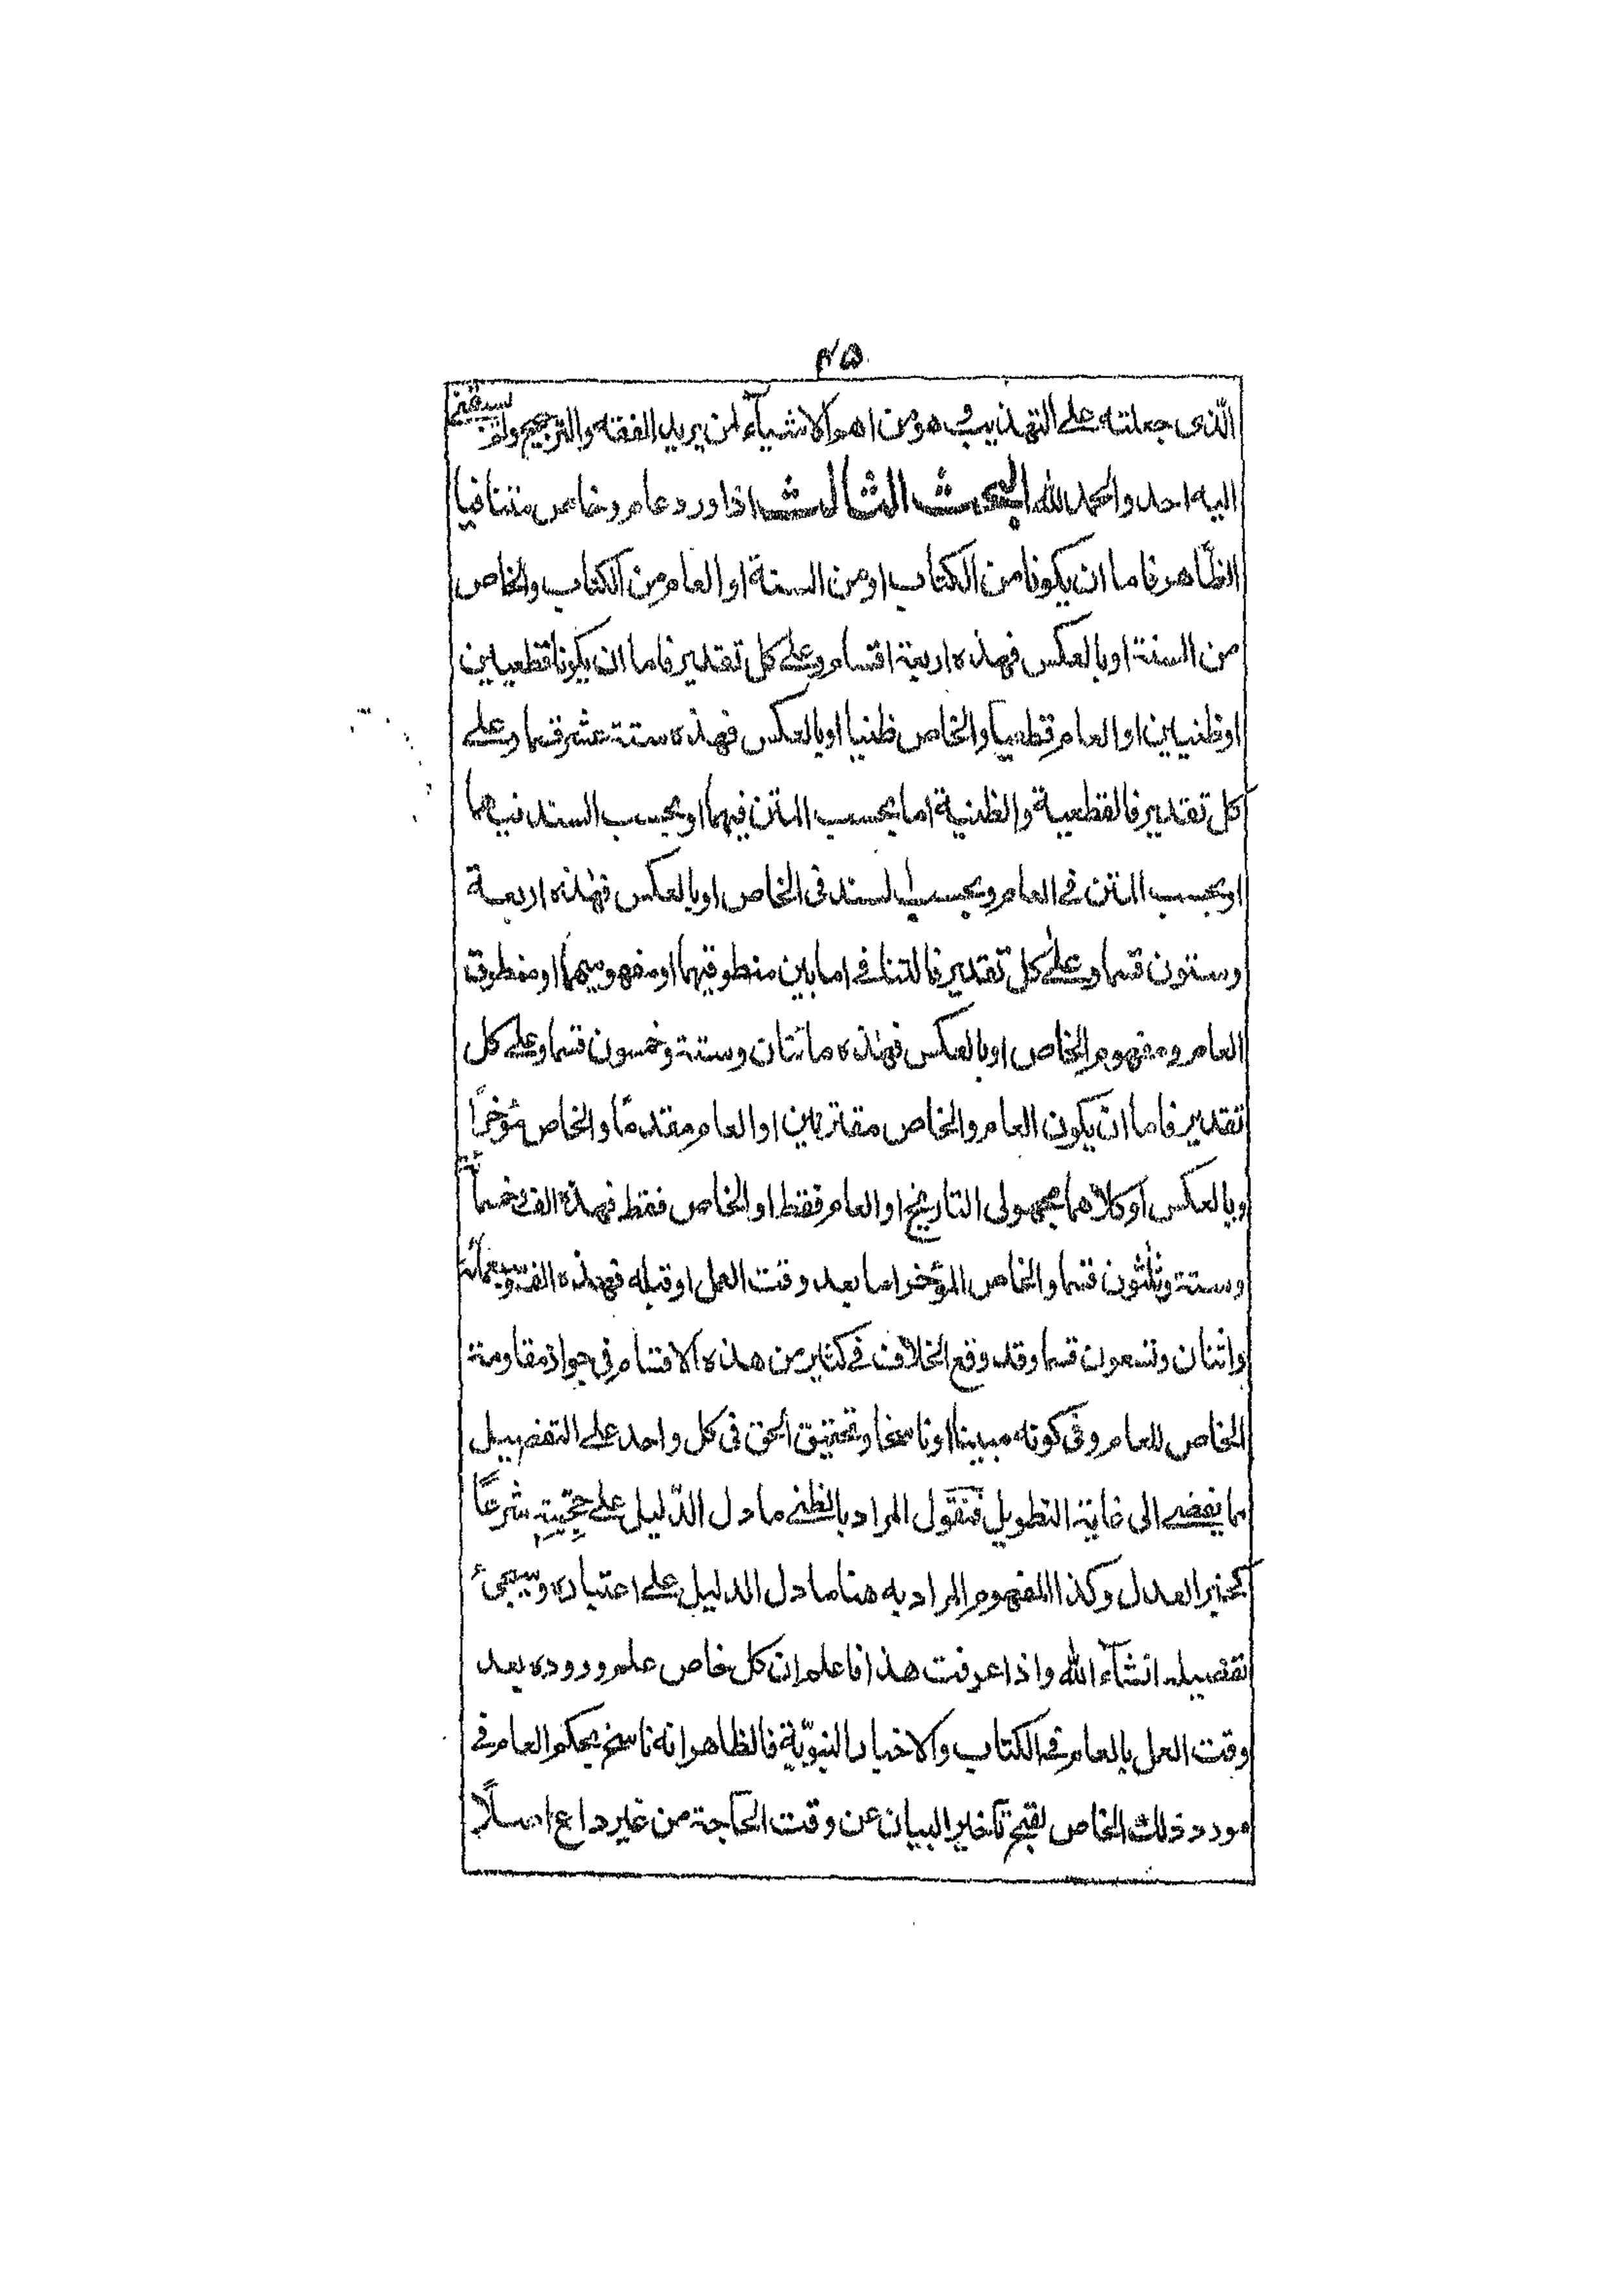 ٤٥
الّذى جعلته على التهذيب و هو من اهم الاشياء لمن يريد الفقه و الترجيح و لم يسبقنى
اليه احد و الحمد لله البحث الثالث اذا ورد عام و خاص متنافيا
الظّاهر فاما ان يكونا من الكتاب او من السنة او العام من الكتاب والخاص
من السنة او بالعكس فهذه اربعة اقسام و على كل تقدير فاما ان يكونا قطعيين
او ظنيين او العام قطعيا والخاص ظنيا او بالعكس فهذه ستة عشر قسما و على
كل تقدير فالقطعية والظنية اما بحسب المتن فيهما او بحسب السند فيهما
او بحسب المتن فى العام و بحسب السند فى الخاص او بالعكس فهذه اربعة
و ستون قسما و على كل تقدير فالتنافى اما بين منطوقيهما او مفهوميهما او منطوق
العام و مفهوم الخاص او بالعكس فهذه مائتان و ستة و خمسون قسما و على كل
تقدير فاما ان يكون العام والخاص مقترنين او العام مقدمًا والخاص مؤخرًا
او بالعكس او كلاهما مجهولى التاريخ او العام فقط او الخاص فقط فهذه الف و خمسمائة
و ستة و ثلثون قسما والخاص المؤخر اما بعد وقت العمل او قبله فهذه الف و سبعمائة
و اثنان و تسعون قسما و قد وقع الخلاف فى كثير من هذه الاقسام فى جواز مقاومة
الخاص للعام و فى كونه مبينا او ناسخا و تحقيق الحق فى كل واحد على التفصيل
مما يفضى الى غاية التطويل فنقول المراد بالظنى ما دل الدّليل على حجّيته شرعًا
كخبر العدل و كذا المفهوم المراد به هنا ما دل الدليل على اعتباره و سيجئ
تفصيله انشآء الله و اذا عرفت هذا فاعلم ان كل خاص علم وروده بعد
وقت العمل بالعام فى الكتاب والاخبار النبويّة فالظاهر انه ناسخ لحكم العام فى
مورد ذلك الخاص لقبح تأخير البيان عن وقت الحاجة من غير داع اصلًا